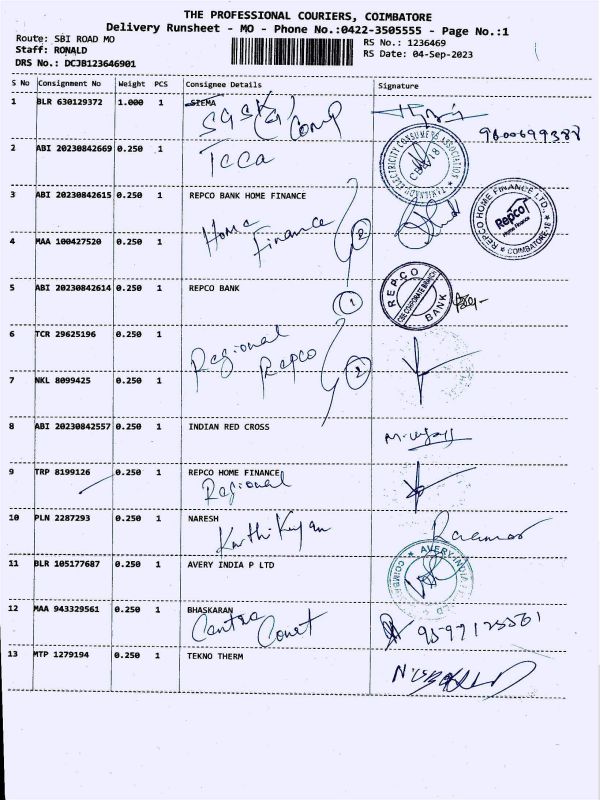 THE PROFESSIONAL COURIERS, COIMBATORE
Delivery Runsheet - MO - Phone No.:0422-3505555 - Page No.:1
Route: SBI ROAD MO
RS No.: 1236469
Staff: RONALD
RS Date: 04-Sep-2023
DRS No.: DCJB123646901
S No Consignment No Weight PCS Consignee Details Signature
1 BLR 630129372 1.000 1 SIEMA
2 ABI 20230842669 0.250 1
Tcca
TAMILNADU ELECTRICITY CONSUMERS ASSOCIATION
CBE-18
3 ABI 20230842615 0.250 1 REPCO BANK HOME FINANCE
Home Finance 2
REPCO HOME FINANCE LTD.,
Repco
Home Finance
COIMBATORE-18
4 MAA 100427520 0.250 1
5 ABI 20230842614 0.250 1 REPCO BANK
1
REPCO BANK
CBE CORPORATE BRANCH
6 TCR 29625196 0.250 1
Regional Repco 2
7 NKL 8099425 0.250 1
8 ABI 20230842557 0.250 1 INDIAN RED CROSS
9 TRP 8199126 0.250 1 REPCO HOME FINANCE
Regional
10 PLN 2287293 0.250 1 NARESH
11 BLR 105177687 0.250 1 AVERY INDIA P LTD
AVERY INDIA
12 MAA 943329561 0.250 1 BHASKARAN
13 MTP 1279194 0.250 1 TEKNO THERM